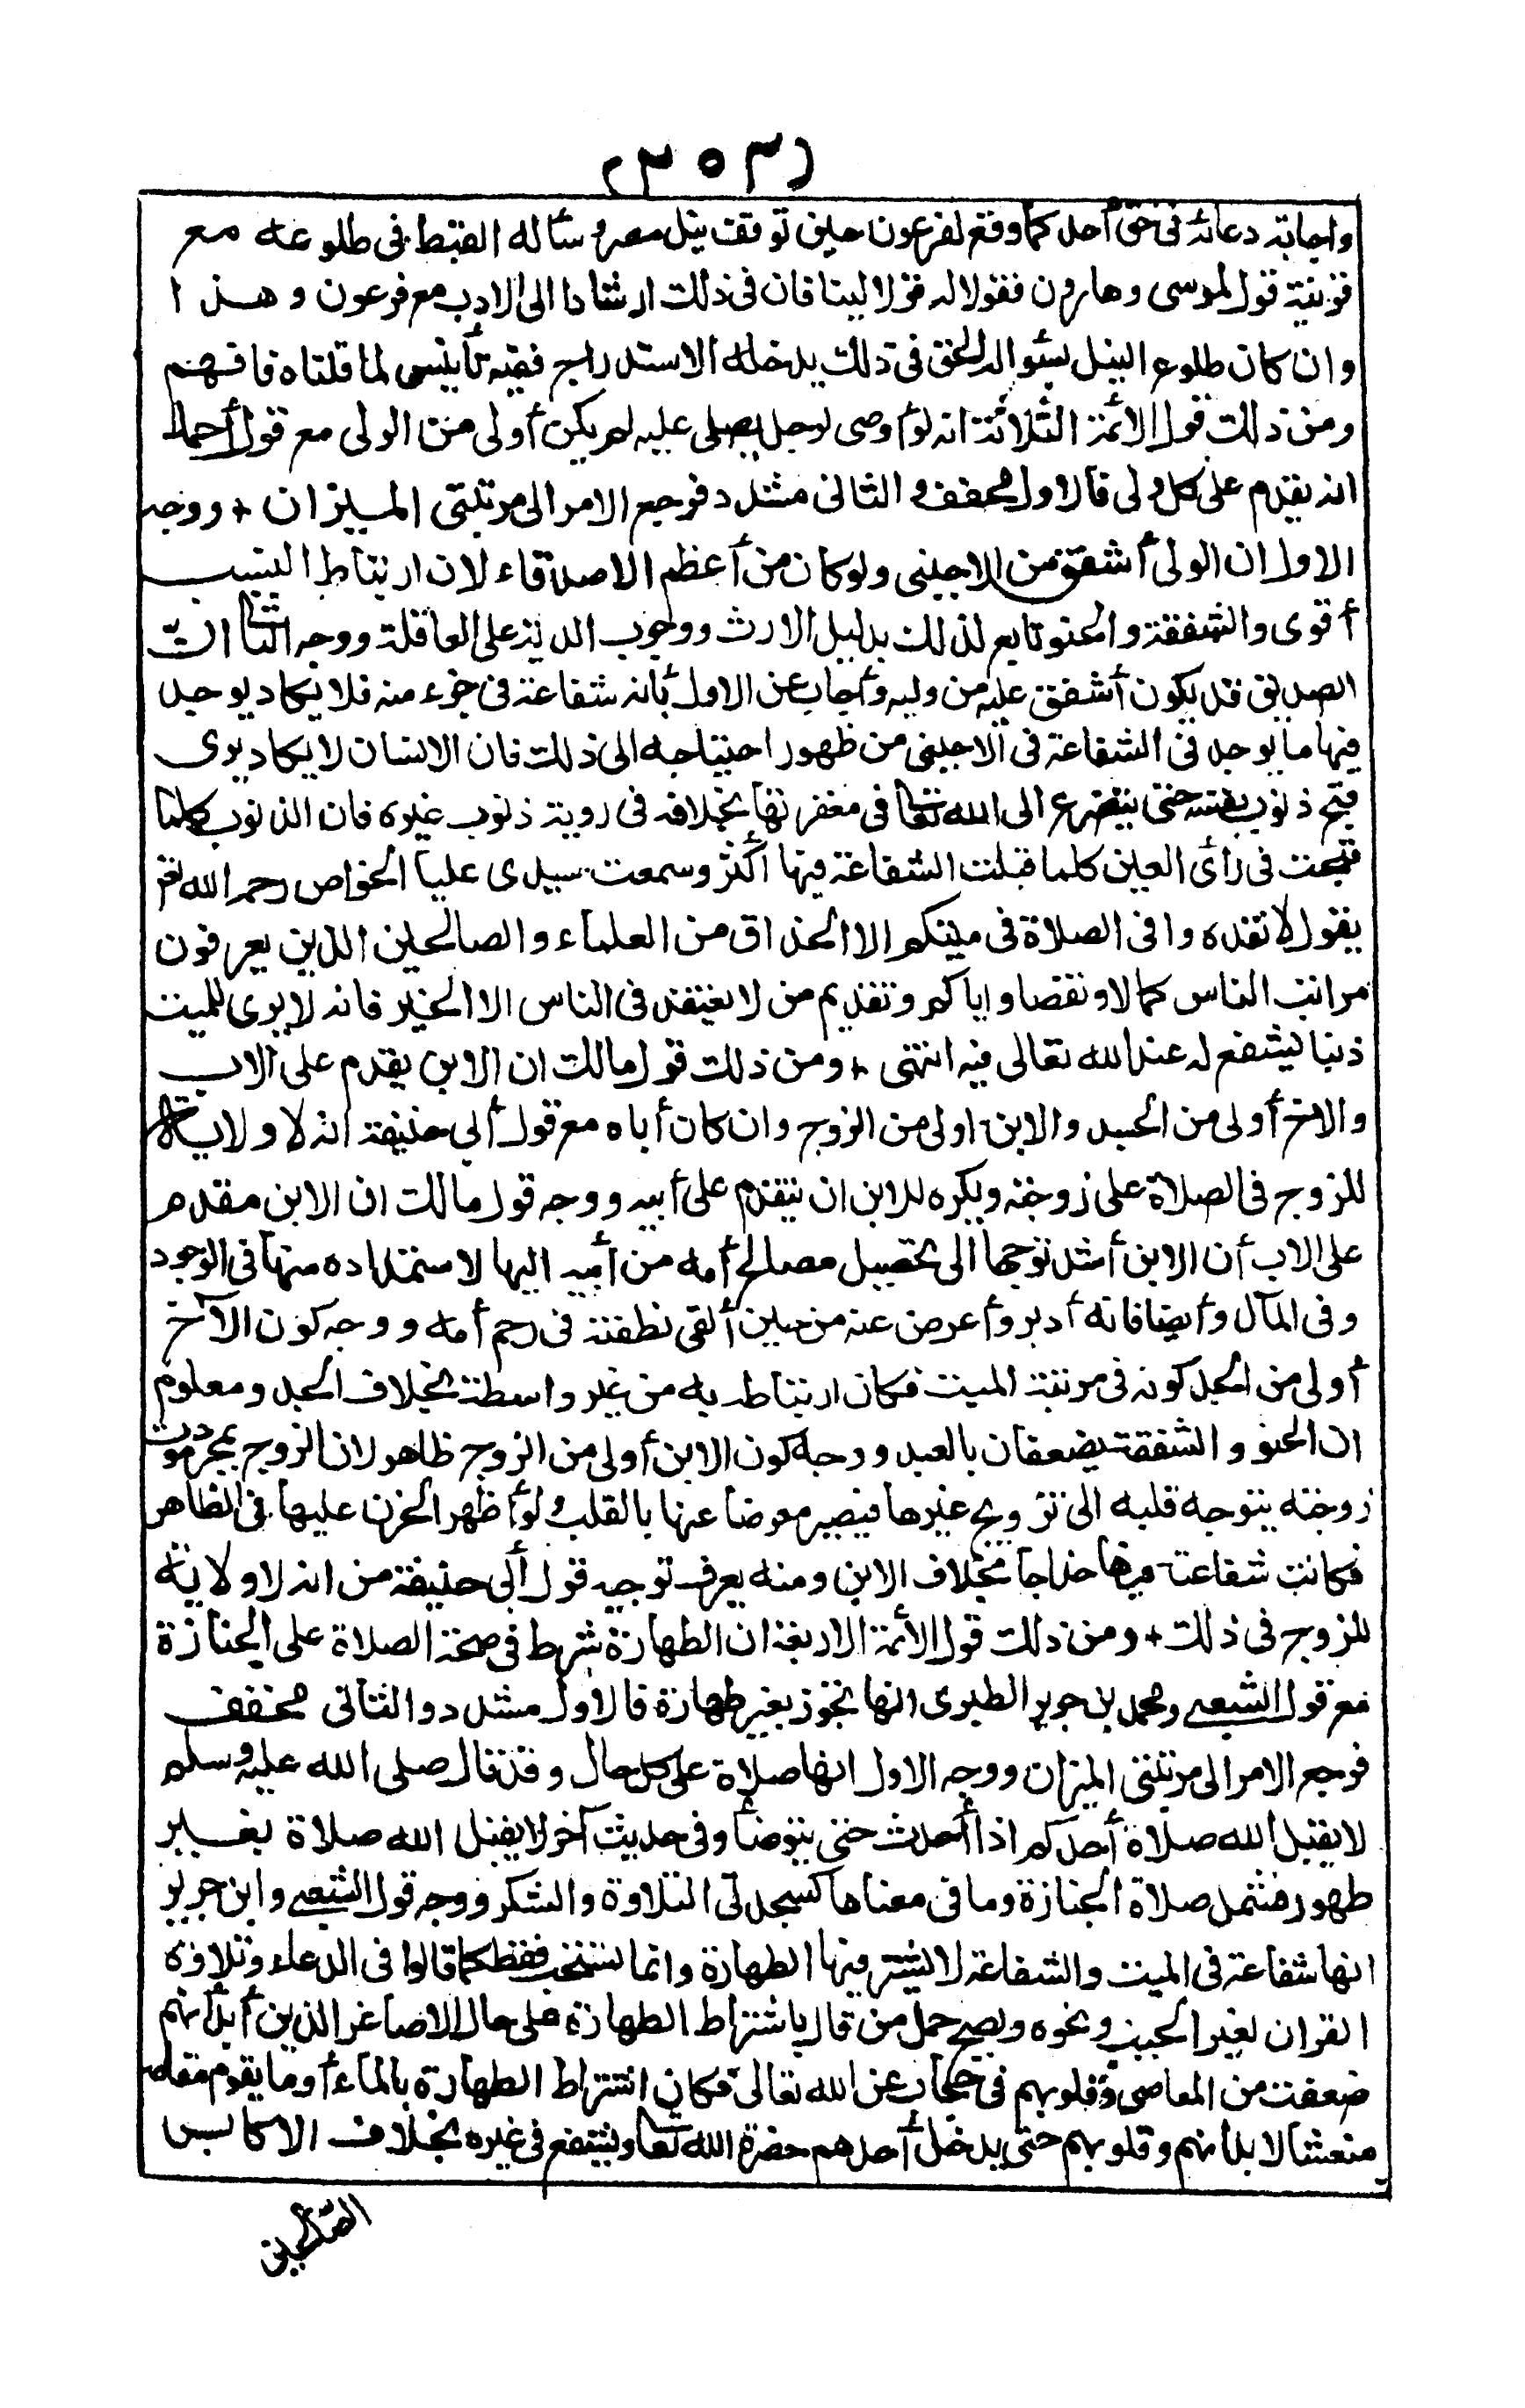 (٢٥٣)
واجابة دعائه في حق أحد كما وقع لفرعون حين توقف نيل مصر وسأله القبط في طلوعه مع
قرينة قول لموسى وهارون فقولا له قولا لينا فان في ذلك ارشادا الى الادب مع فرعون وهذا
وان كان طلوع النيل بسؤاله الحق في ذلك يدخله الاستدراج ففيه تأنيس لما قلناه فافهم
ومن ذلك قول الأئمة الثلاثة انه لو أوصى لرجل يصلى عليه لم يكن أولى من الولى مع قول أحمد
انه يقدم على كل ولى فالاول مخفف والثانى مشدد فرجع الامر الى مرتبتى الميزان + ووجه
الاول ان الولى أشفق من الاجنبى ولو كان من أعظم الاصدقاء لان ارتباط النسب
أقوى والشفقة والحنو تابع لذلك بدليل الارث ووجوب الدية على العاقلة ووجه الثانى ان
الصديق قد يكون أشفق عليه من وليه وأجاب عن الاول بأنه شفاعة في جزء منه فلا يكاد يوجد
فيها ما يوجد في الشفاعة في الاجنبى من ظهور احتياجه الى ذلك فان الانسان لا يكاد يرى
قبح ذنوب نفسه حتى يتضرع الى الله تعا في مغفرتها بخلافه في روية ذنوب غيره فان الذنوب كلما
قبحت في رأى العين كلما قبلت الشفاعة فيها أكثر وسمعت سيدى عليا الخواص رحمه الله تعا
يقول لا تقدموا في الصلاة في ميتكم الا الحذاق من العلماء والصالحين الذين يعرفون
مراتب الناس كمالا ونقصا واياكم وتقديم من لا يعتقد في الناس الا الخير فانه لا يرى للميت
ذنبا ليشفع له عند الله تعالى فيه انتهى + ومن ذلك قول مالك ان الابن يقدم على الاب
والاخ أولى من الجد والابن اولى من الزوج وان كان أباه مع قول أبى حنيفة انه لا ولاية
للزوج في الصلاة على زوجته ويكره للابن ان يتقدم على أبيه ووجه قول مالك ان الابن مقدم
على الاب أن الابن أشد توجها الى تحصيل مصالح أمه من أبيه اليها لاستمداده منها في الوجود
وفي المآل وأيضا فانه أدبر وأعرض عنه من حين ألقى نطفته في رحم أمه ووجه كون الآخ
أولى من الجد كونه في مرتبة الميت فكان ارتباطه به من غير واسطة بخلاف الجد ومعلوم
ان الحنو والشفقة يضعفان بالعبد ووجه كون الابن أولى من الزوج ظاهر لان الزوج بمجرد موت
زوجته يتوجه قلبه الى تزويج غيرها فيصير معرضا عنها بالقلب ولو أظهر الحزن عليها في الظاهر
فكانت شفاعته فيها خداجا بخلاف الابن ومنه يعرف توجيه قول أبى حنيفة من انه لا ولاية
للزوج في ذلك + ومن ذلك قول الأئمة الاربعة ان الطهارة شرط في صحة الصلاة على الجنازة
مع قول الشعبى ومحمد بن جرير الطبرى انها تجوز بغير طهارة فالاول مشدد والثانى مخفف
فرجع الامر الى مرتبتى الميزان ووجه الاول انها صلاة على كل حال وقد قال صلى الله عليه وسلم
لا يقبل الله صلاة أحدكم اذا أحدث حتى يتوضأ وفي حديث آخر لا يقبل الله صلاة بغير
طهور فشمل صلاة الجنازة وما في معناها كسجدتى التلاوة والشكر ووجه قول الشعبى وابن جرير
انها شفاعة في الميت والشفاعة لا يشتر فيها الطهارة وانما تستحب فقط كما قالوا في الدعاء وتلاوة
القران لغير الجنب ونحوه ويصح حمل من قال باشتراط الطهارة على حال الاصاغر الذين أبدانهم
ضعفت من المعاصى وقلوبهم في حجاب عن الله تعالى فكان اشتراط الطهارة بالماء أوما يقوم مقامه
منعشا لابدانهم وقلوبهم حتى يدخل أحدهم حضرة الله تعا ويشفع في غيره بخلاف الاكابر